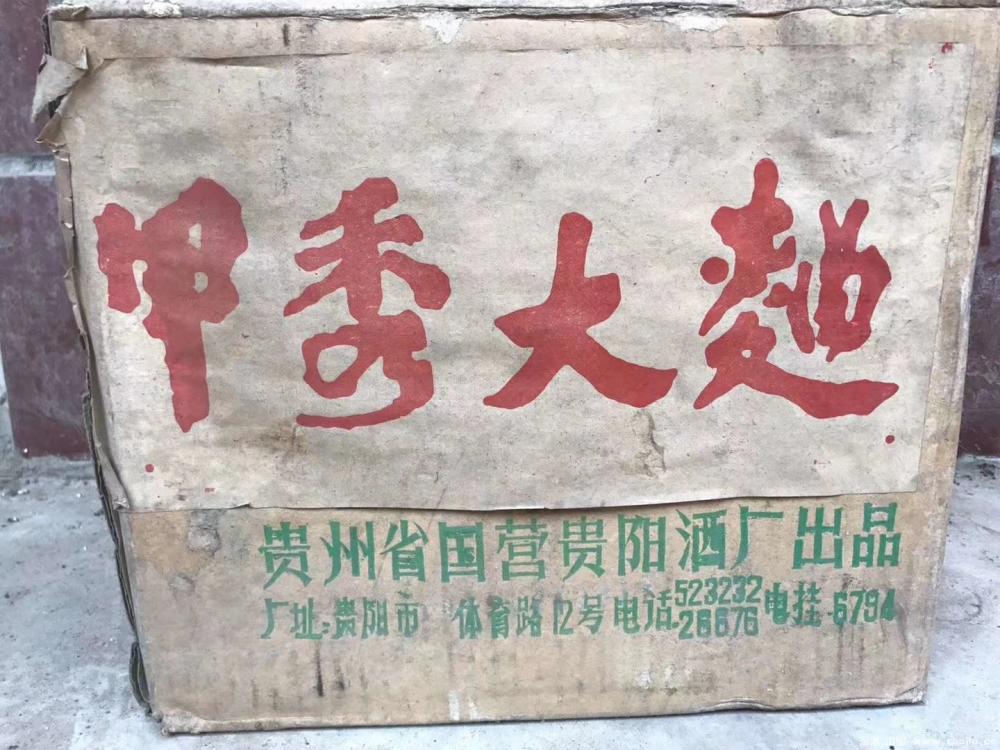 甲秀大麯
贵州省国营贵阳酒厂出品
厂址:贵阳市 体育路12号 电话 523232 26676 电挂 6794